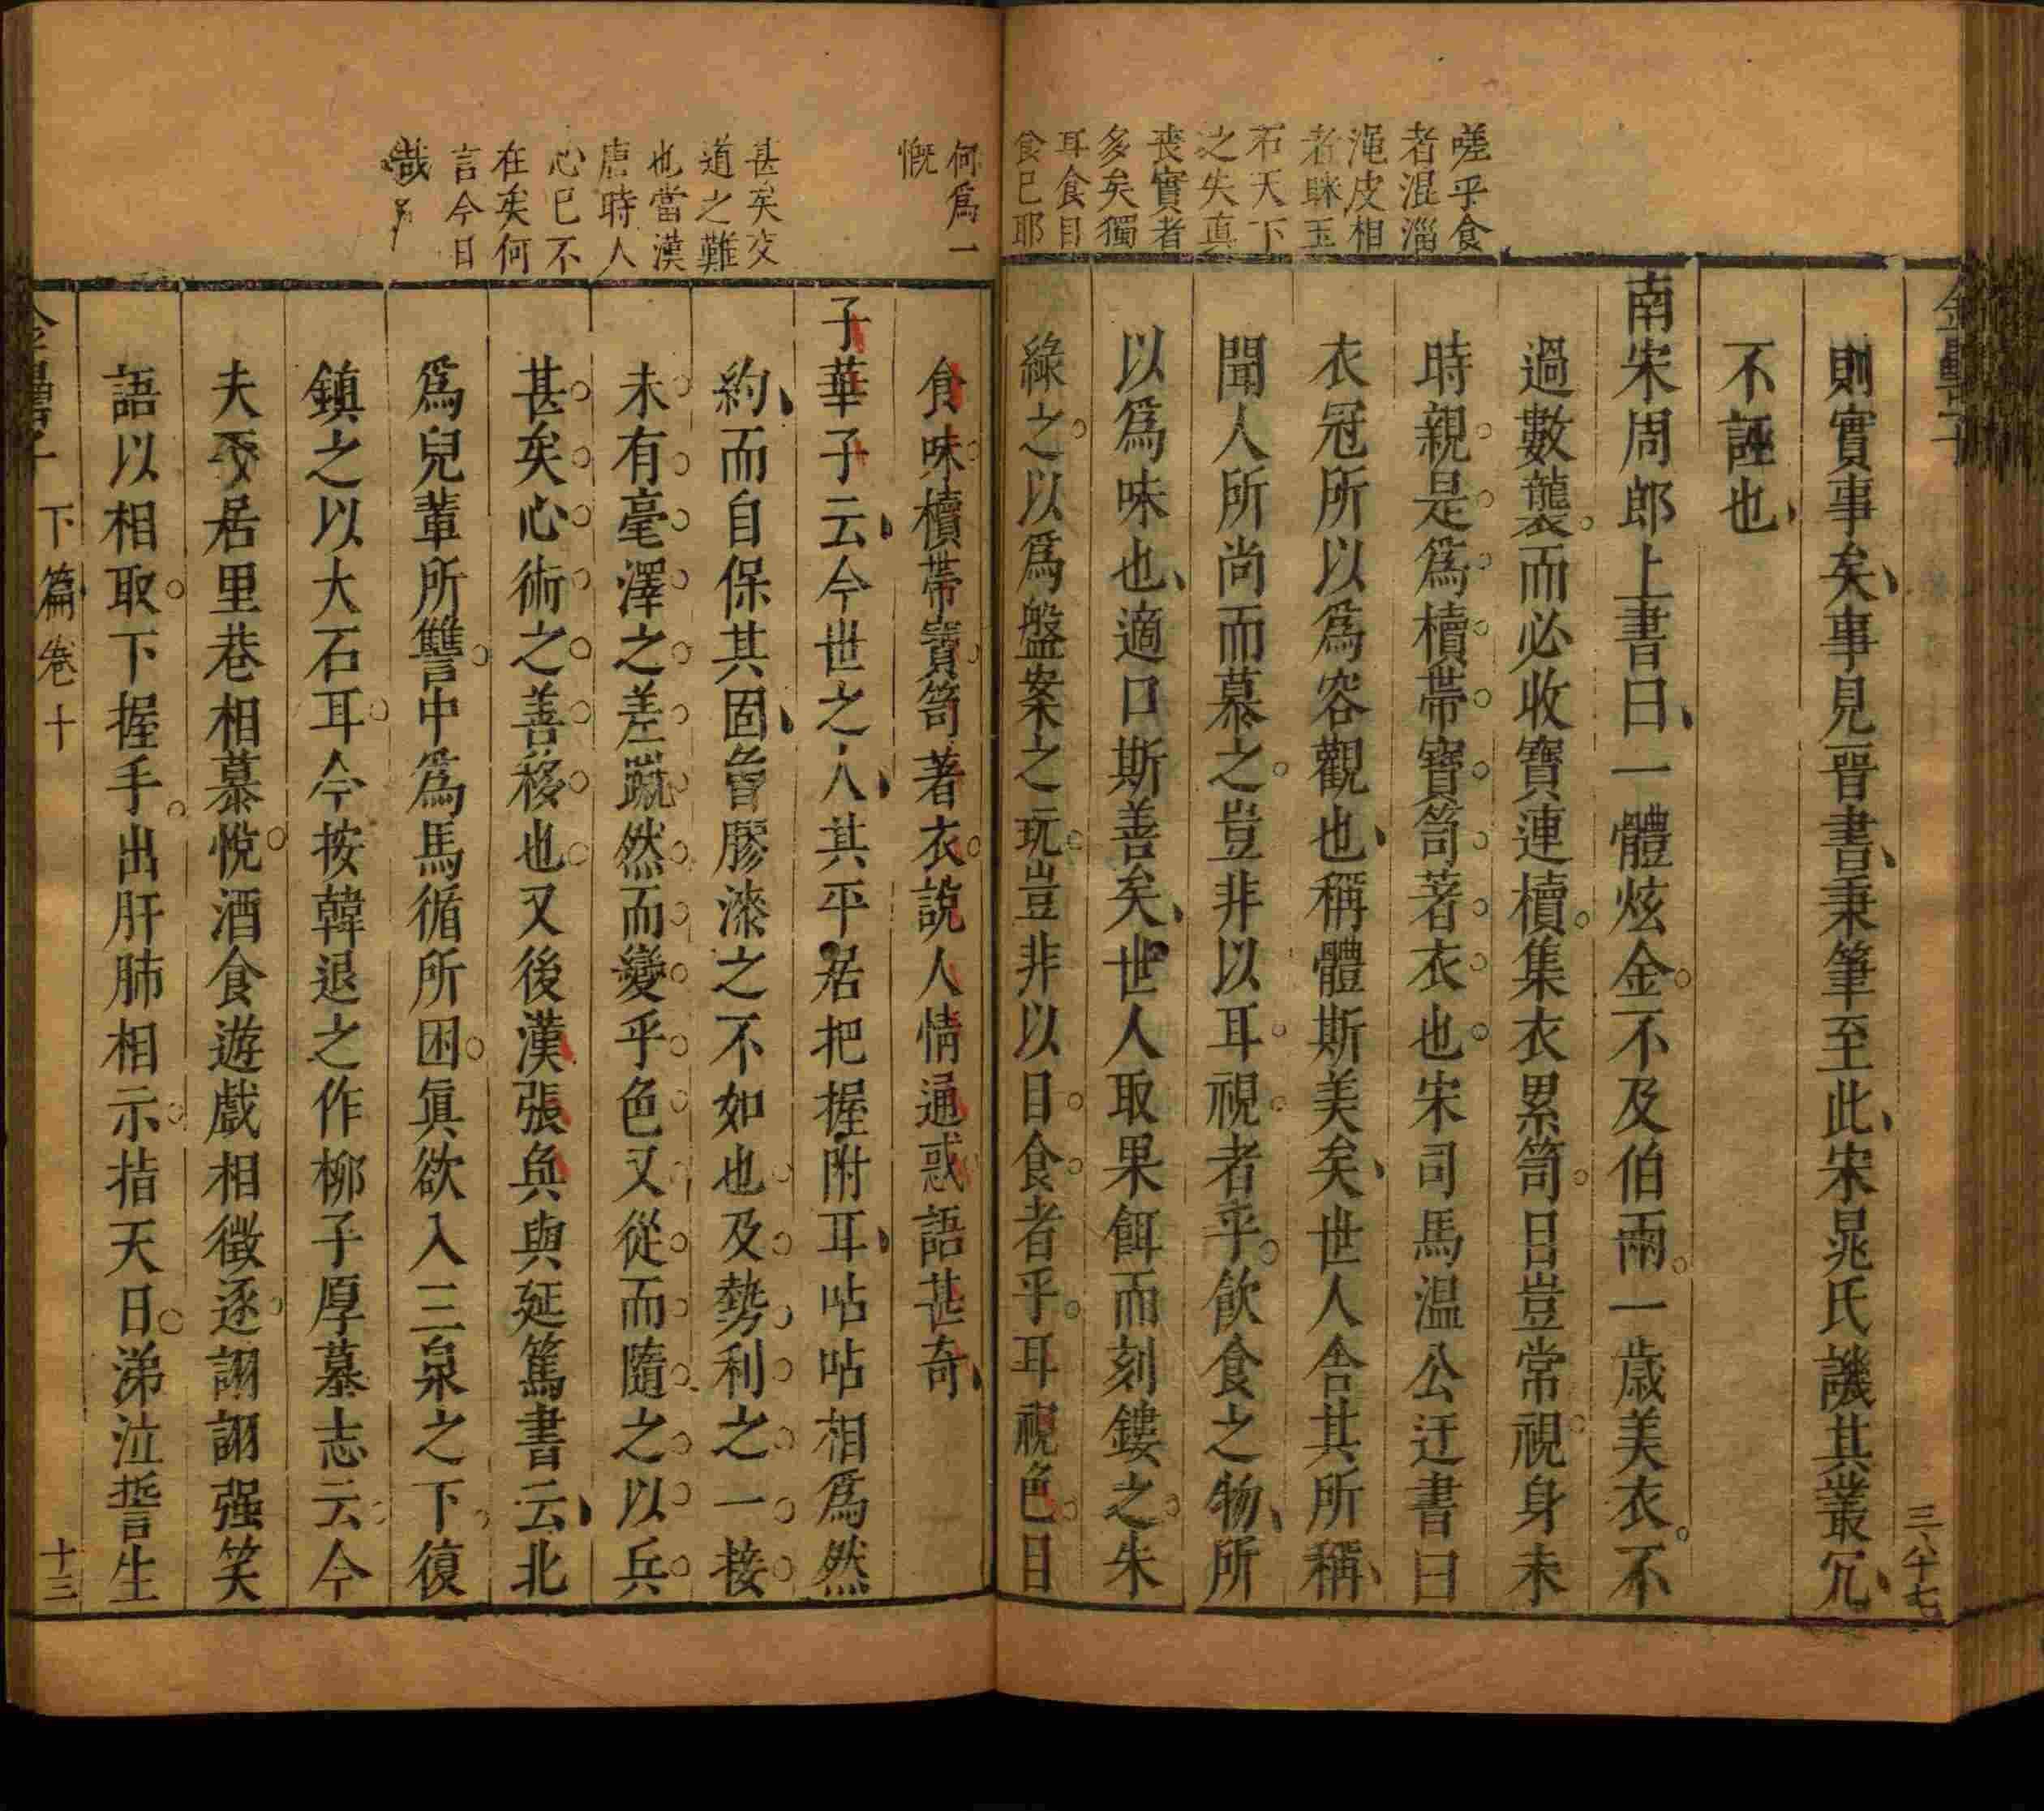 嗟乎食
者混淄
渑皮相
者眯玉
石天下
之失真
喪實者
多矣獨
耳食目
食已耶
則實事矣事見晉書秉筆至此宋晁氏譏其叢冗
不誣也
南宋周郎上書曰一體炫金不及伯兩一歲美衣不
過數襲而必收寶連櫝集衣累笥日豈常視身未
時親是爲櫝帶寶笥著衣也宋司馬温公迂書曰
衣冠所以爲容觀也稱體斯美矣世人舍其所稱
聞人所尚而慕之豈非以耳視者乎飲食之物所
以爲味也適口斯善矣世人取果餌而刻鏤之朱
綠之以爲盤案之玩豈非以目食者乎耳視色目
何爲一
慨
甚矣交
道之難
也當漢
唐時人
心已不
在矣何
言今日
哉
食味櫝帶寶笥著衣說人情通惑語甚奇
子華子云今世之人其平居把握附耳呫呫相爲然
約而自保其固曾膠漆之不如也及勢利之一接
未有毫澤之差蹴然而變乎色又從而隨之以兵
甚矣心術之善移也又後漢張奐與延篤書云北
爲兒輩所讐中爲馬循所困眞欲入三泉之下復
鎮之以大石耳今按韓退之作柳子厚墓志云今
夫平居里巷相慕悅酒食遊戲相徵逐詡詡强笑
語以相取下握手出肝肺相示指天日涕泣誓生
下篇卷十
十三